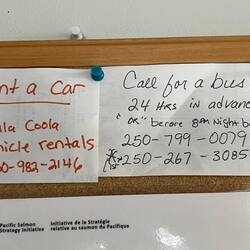 nt a Car
la Coola
hicle rentals
0-982-2146
Call for a bus
24 HRS in advanc
"OR" before 8pm Night be
250-799-0079
250-267-3085
Pacific Salmon
Strategy Initiative
initiative de la Stratégie
relative au saumon du Pacifique